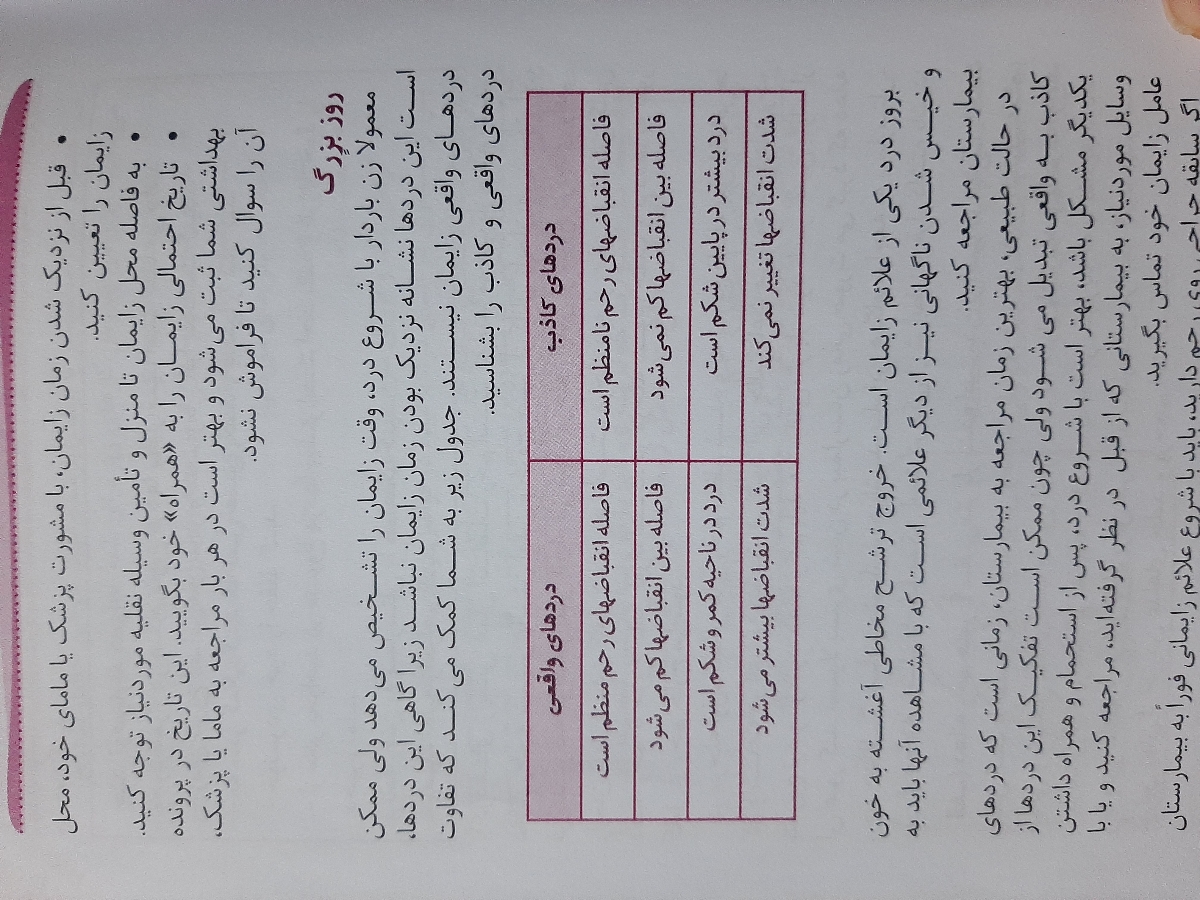 • قبل از نزدیک شدن زمان زایمان، با مشورت پزشک یا مامای خود، محل
زایمان را تعیین کنید.
• به فاصله محل زایمان تا منزل و تأمین وسیله نقلیه موردنیاز توجه کنید.
• تاریخ احتمالی زایمان را به «همراه» خود بگویید. این تاریخ در پرونده
بهداشتی شما ثبت می‌شود و بهتر است در هر بار مراجعه به ماما یا پزشک،
آن را سوال کنید تا فراموش نشود.
روز بزرگ
معمولا زن باردار با شروع درد، وقت زایمان را تشخیص می‌دهد ولی ممکن
است این دردها نشانه نزدیک بودن زمان زایمان نباشد زیرا گاهی این دردها،
دردهای واقعی زایمان نیستند. جدول زیر به شما کمک می‌کند که تفاوت
دردهای واقعی و کاذب را بشناسید.
دردهای کاذب دردهای واقعی
فاصله انقباضهای رحم نامنظم است فاصله انقباضهای رحم منظم است
فاصله بین انقباضها کم نمی‌شود فاصله بین انقباضها کم می‌شود
درد بیشتر در پایین شکم است درد در ناحیه کمر و شکم است
شدت انقباضها تغییر نمی‌کند شدت انقباضها بیشتر می‌شود
بروز درد یکی از علائم زایمان است. خروج ترشح مخاطی آغشته به خون
و خیس شدن ناگهانی نیز از دیگر علائمی است که با مشاهده آنها باید به
بیمارستان مراجعه کنید.
در حالت طبیعی، بهترین زمان مراجعه به بیمارستان، زمانی است که دردهای
کاذب به واقعی تبدیل می‌شود ولی چون ممکن است تفکیک این دردها از
یکدیگر مشکل باشد، بهتر است با شروع درد، پس از استحمام و همراه داشتن
وسایل موردنیاز، به بیمارستانی که از قبل در نظر گرفته‌اید، مراجعه کنید و یا با
عامل زایمان خود تماس بگیرید.
اگر سابقه جراحی روی رحم دارید، باید با شروع علائم زایمانی فوراً به بیمارستان